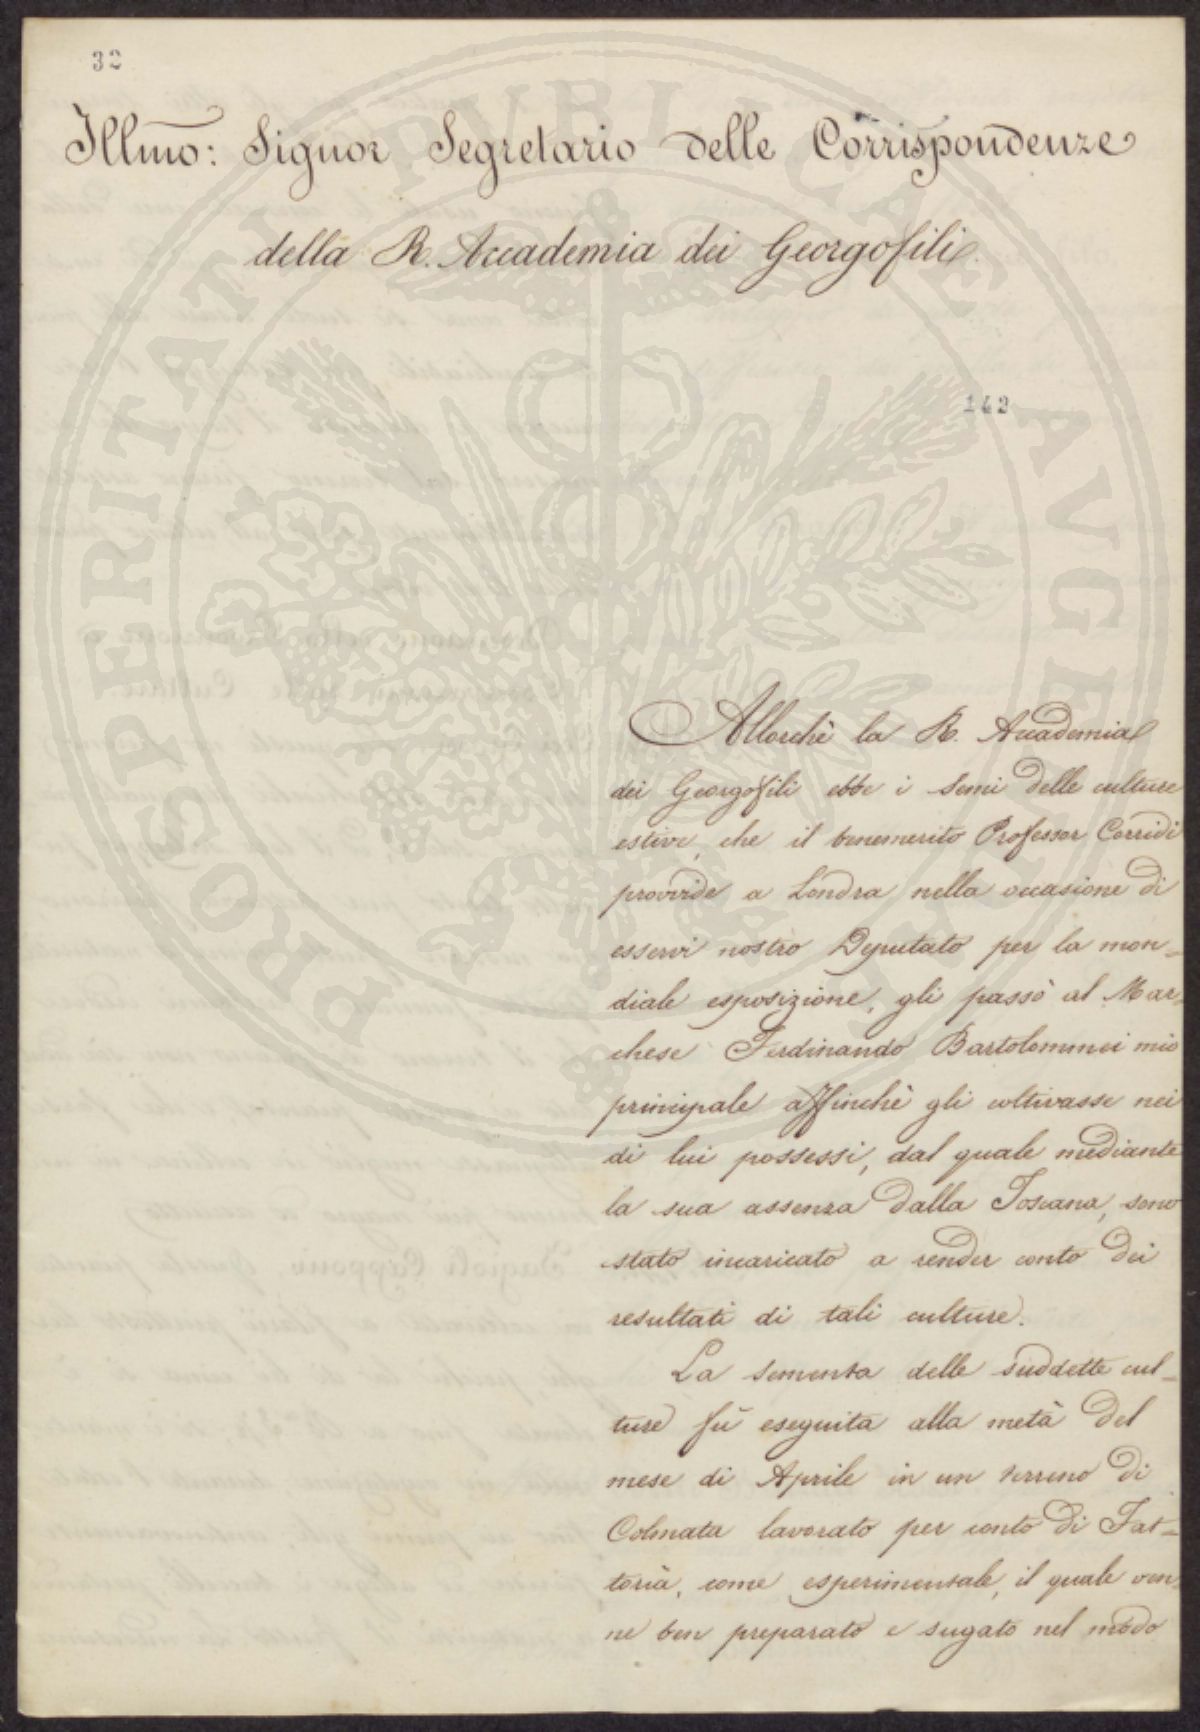 32
Illmo: Signor Segretario delle Corrispondenze
della R. Accademia dei Georgofili.
142
Allorchè la R. Accademia
dei Georgofili ebbe i semi delle culture
estive, che il benemerito Professor Corridi
provvide a Londra nella occasione di
esservi nostro Deputato per la mon=
diale esposizione, gli passò al Mar=
chese Ferdinando Bartolommei mio
principale affinchè gli coltivasse nei
di lui possessi, dal quale mediante
la sua assenza dalla Toscana, sono
stato incaricato a render conto dei
resultati di tali culture.
La sementa delle suddette cul=
ture fù eseguita alla metà del
mese di Aprile in un terreno di
Colmata lavorato per conto di Fat=
toria, come esperimentale, il quale ven=
ne ben preparato e sugato nel modo
PROSPERITATI PVBLICAE AVGENDAE